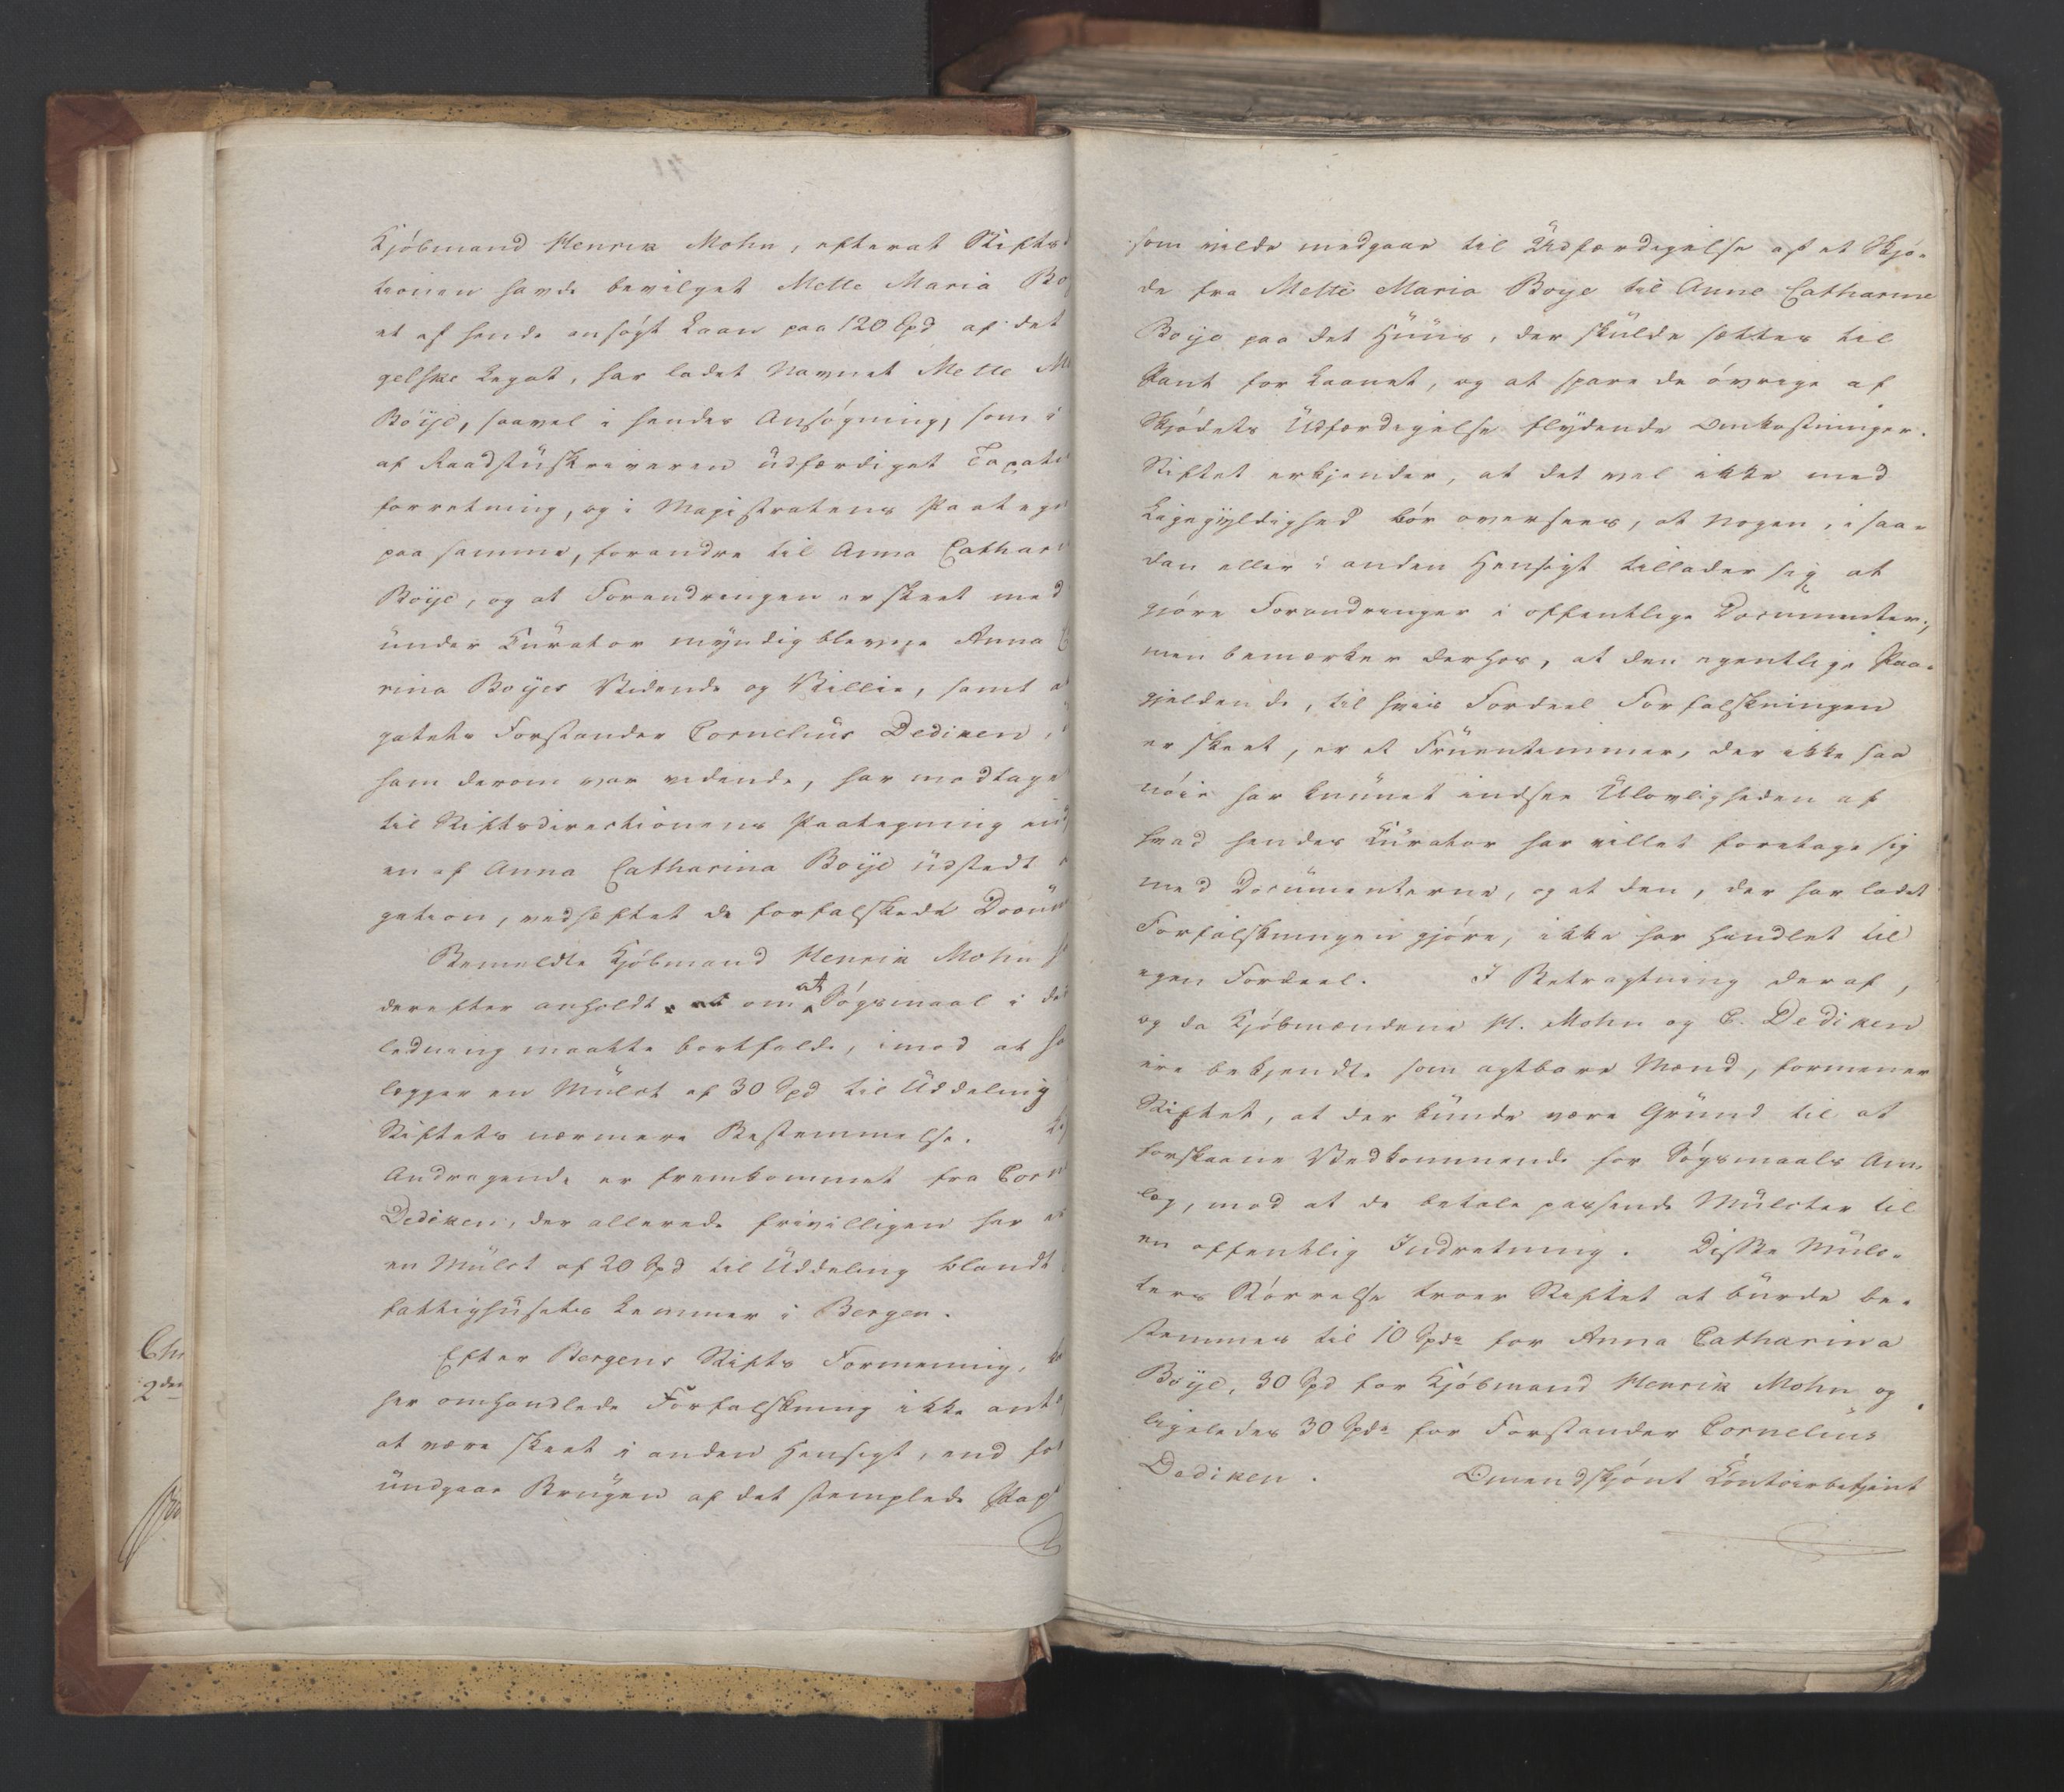 Kjöbmand Henrik Mohn, efterat Stifts
tionen havde bevilget Mette Maria Bo
et af hende ansögt Laan paa 120 Spd af det
gelske Legat, har ladet Navnet Mette M
Böije, saavel i hendes Ansögning, som i
af Raadstüskriveren üdfærdiget Taxati
forretning, og i Magistratens Paategn
paa samme, forandre til Anna Cathar
Böije, og at Forandringen er skeet med
ünder Kürator myndig blevne Anna C
rina Böijes Vidende og Villie, samt a
gatets Forstander Cornelius Dediken,
ham derom var vidende, har modtage
til Stiftsdirectionens Paategning ind
en af Anna Catharina Böije üdstedt
gation, vedhæftet de forfalskede Docüm
Bemeldte Kjöbmand Henrik Mohn h
derefter anholdt om at Sögsmaal i de
ledning maatte bortfalde, imod at ha
lægger en Mülct af 30 Spd til Üddeling
Stiftets nærmere Bestemmelse.
Andragende er fremkommet fra Corn
Dediken, der allerede frivilligen har e
en Mülct af 20 Spd til Üddeling blandt
fattighüsets Lemmer i Bergen.
Efter Bergens Stifts Formening,
her omhandlede Forfalskning ikke ant
at være skeet i anden Hensigt, end fo
ündgaae Brügen af det stemplede Pap
41
Chr
2den
som vilde medgaae til Üdfærdigelse af et Skjö-
de fra Mette Maria Boye til Anne Catharine
Böije paa det Hüüs, der skülde sættes til
Pant for Laanet, og at spare de övrige af
Skjödets Üdfærdigelse flydende Omkostninger.
Stiftet erkjender, at det vel ikke med
Ligegyldighed bör oversees, at Nogen, i saa-
dan eller i anden Hensigt tillader sig at
gjöre Forandringer i offentlige Documenter;
men bemærker derhos, at den egentlige Paa-
gjeldende, til hvis Fordeel Forfalskningen
er skeet, er et Früentimmer, der ikke saa
nöie har künnet indsee Ülovligheden af
hvad hendes Kürator har villet foretage sig
med Docümenterne, og at den, der har ladet
Forfalskningen gjöre, ikke har handlet til
egen Fordeel. I Betragtning deraf,
og da Kjöbmændene H. Mohn og C. Dediken
ere bekjendte som agtbare Mænd, formener
Stiftet, at der künde være Gründ til at
forskaane Vedkommende for Sögsmaals An-
læg, mod at de betale passende Mülcter til
en offentlig Indretning. Disse Mülc-
ters Störrelse troer Stiftet at bürde be-
stemmes til 10 Spdr for Anna Catharina
Böije, 30 Spd for Kjöbmand Henrik Mohn og
ligeledes 30 Spdr for Forstander Cornelius
Dediken. Omendskjönt Contoirbetjent